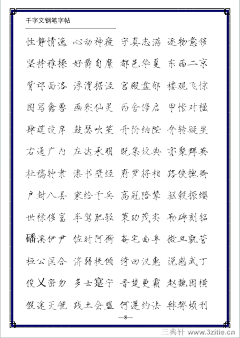 千字文钢笔字帖
性静情逸 心动神疲 守真志满 逐物意移
坚持雅操 好爵自縻 都邑华夏 东西二京
背邙面洛 浮渭据泾 宫殿盘郁 楼观飞惊
图写禽兽 画彩仙灵 丙舍傍启 甲帐对楹
肆筵设席 鼓瑟吹笙 升阶纳陛 弁转疑星
右通广内 左达承明 既集坟典 亦聚群英
杜稿钟隶 漆书壁经 府罗将相 路侠槐卿
户封八县 家给千兵 高冠陪辇 驱毂振缨
世禄侈富 车驾肥轻 策功茂实 勒碑刻铭
磻溪伊尹 佐时阿衡 奄宅曲阜 微旦孰营
桓公匡合 济弱扶倾 绮回汉惠 说感武丁
俊乂密勿 多士寔宁 晋楚更霸 赵魏困横
假途灭虢 践土会盟 何遵约法 韩弊烦刑
—8—